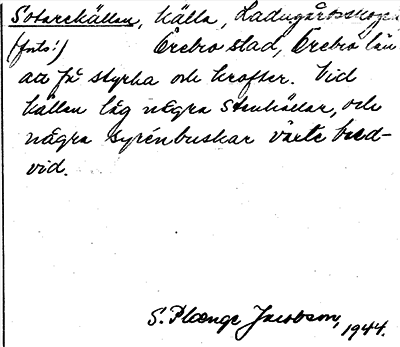 Sotarekällan, källa, Ladugårdsskogen
(foto!) Örebro stad, Örebro län
att få styrka och krafter. Vid
källan låg några stenhällar, och
några syrénbuskar växte bred-
vid.
S. Plænge Jacobson, 1944.